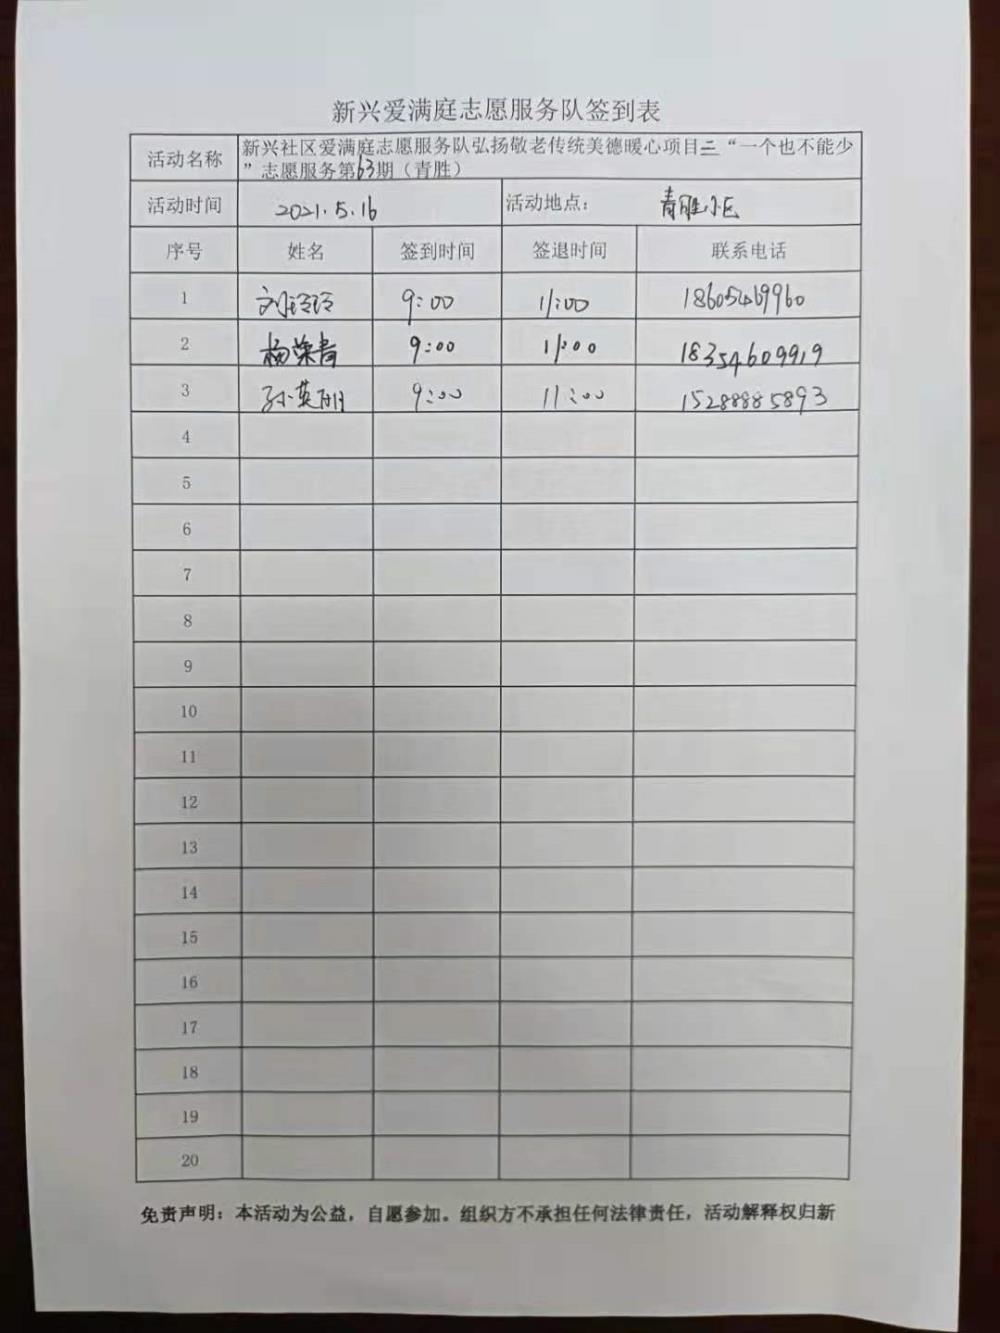 新兴爱满庭志愿服务队签到表
活动名称 新兴社区爱满庭志愿服务队弘扬敬老传统美德暖心项目二“一个也不能少
”志愿服务第63期（青胜）
活动时间 2021.5.16 活动地点： 青胜小区
序号 姓名 签到时间 签退时间 联系电话
1 刘玲玲 9:00 11:00 18605469960
2 杨荣青 9:00 11:00 18354609919
3 孙英明 9:00 11:00 15288885893
4
5
6
7
8
9
10
11
12
13
14
15
16
17
18
19
20
免责声明：本活动为公益，自愿参加。组织方不承担任何法律责任，活动解释权归新